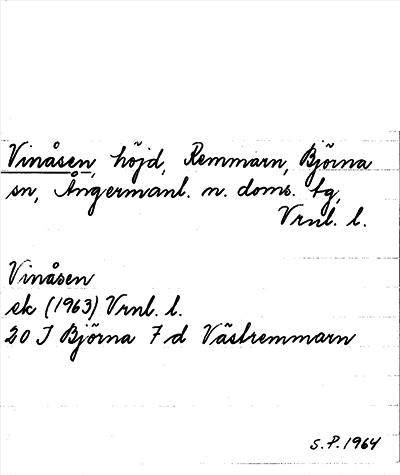 Vinåsen, höjd, Remmarn, Björna
sn, Ångermanl. n. doms. tg,
Vrnl. l.
Vinåsen
ek (1963) Vrnl. l.
20 I Björna 7 d Västremmarn
S.P. 1964